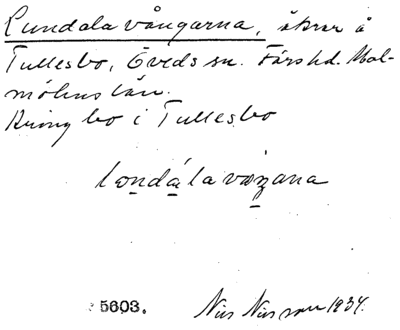 Lundala vångarna, åkrar å
Tullesbo, Öveds sn. Färs hd. Mal-
möhus län.
bo i Tullesbo
londála våŋana
5603.
Nils Nilsson 1934.